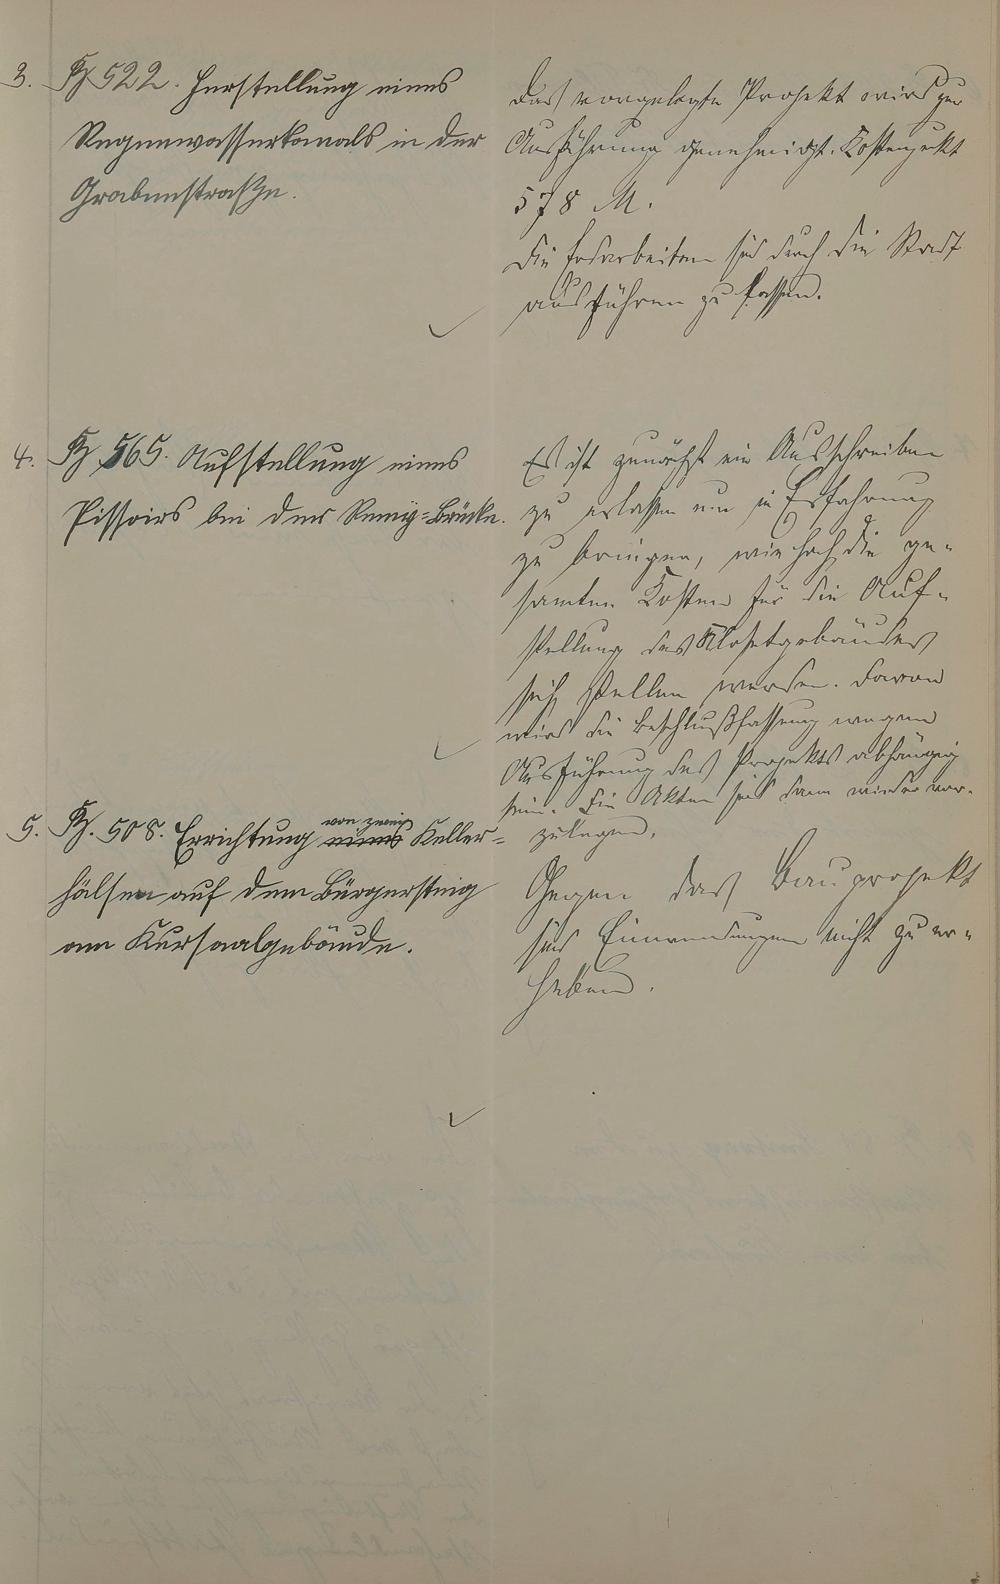 3. Kz 522. Herstellung eines
Regenwasserkanals in der
Grabenstraße.
Das vorgelegte Projekt wird zur
Ausführung genehmigt. Kostenpunkt
578 M.
Die Erdarbeiten sind durch die Stadt
ausführen zu lassen.
4. Kz 565. Aufstellung eines
Pissoirs bei der Remy-Brücke.
Es ist zunächst ein Ausschreiben
zu erlassen um in Erfahrung
zu bringen, wie hoch die ge-
samten Kosten für die Auf-
stellung des Klosetgebäudes
sich stellen werden. Davon
wird die Beschlußfassung wegen
Ausführung des Projekts abhängig
sein. Die Akten sind dann wieder vor-
zulegen.
5. Kz. 508. Errichtung eines von zwei Keller-
hälsen auf dem Bürgersteig
am Kursaalgebäude.
Gegen das Bauprojekt
sind Einwendungen nicht zu er-
heben.